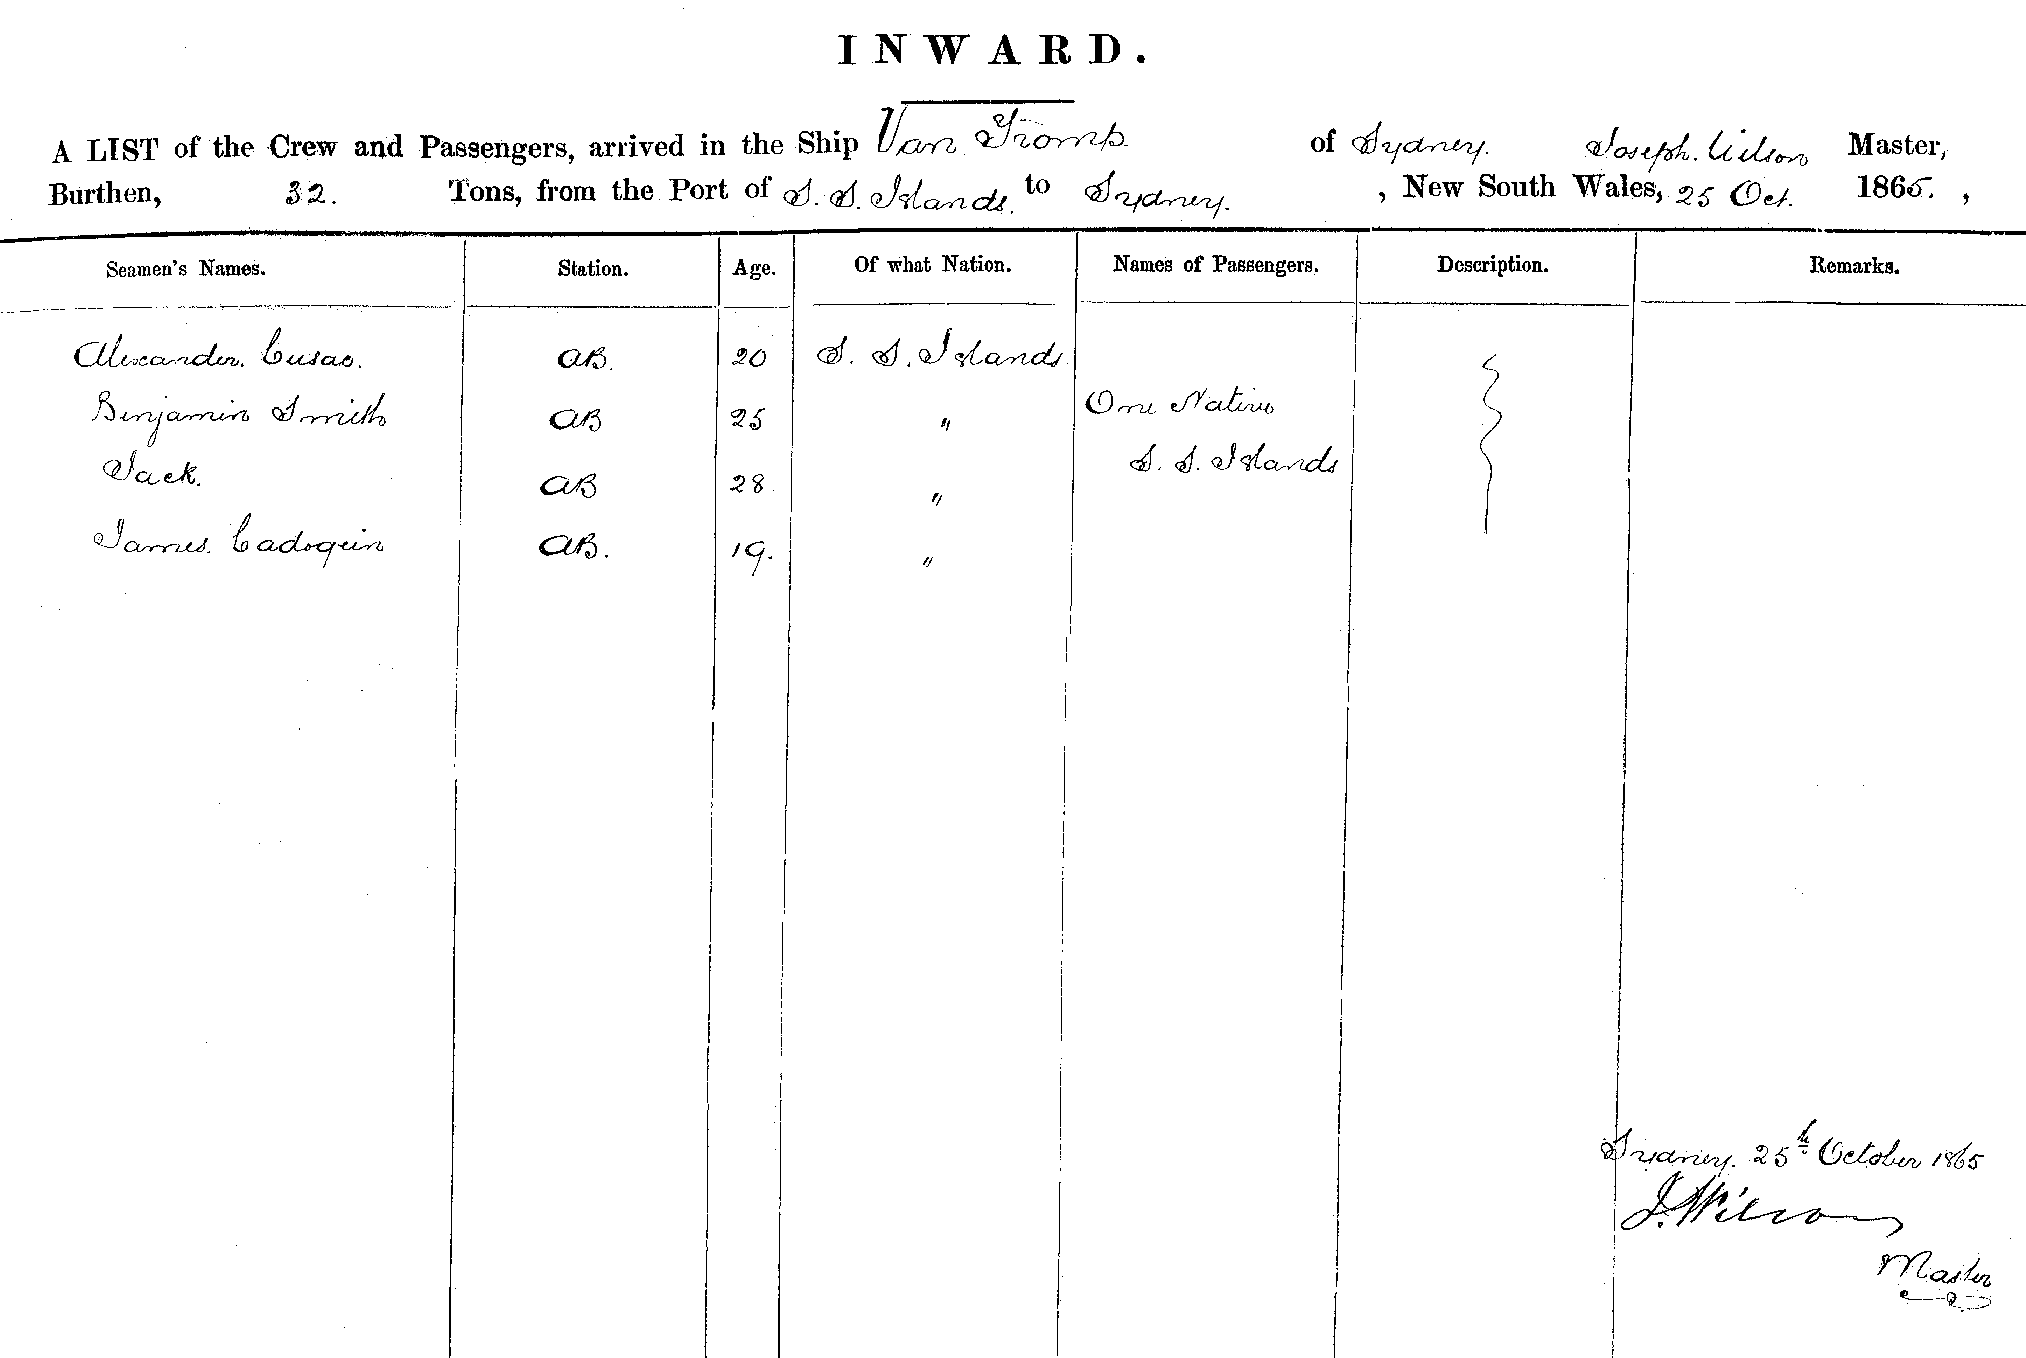 INWARD.
A LIST of the Crew and Passengers, arrived in the Ship Van Tromp of Sydney. Joseph. Wilson Master,
Burthen, 32. Tons, from the Port of S. S. Islands. to Sydney. , New South Wales, 25 Oct. 1865. ,
Seamen's Names. Station. Age. Of what Nation. Names of Passengers. Description. Remarks.
Alexander. Cusac. AB. 20 S. S. Islands
Benjamin Smith AB 25 " One Native
Jack. AB 28 " S. S. Islands
James. Cadoguin AB. 19. "
Sydney. 25th October 1865
J. Wilson
Master